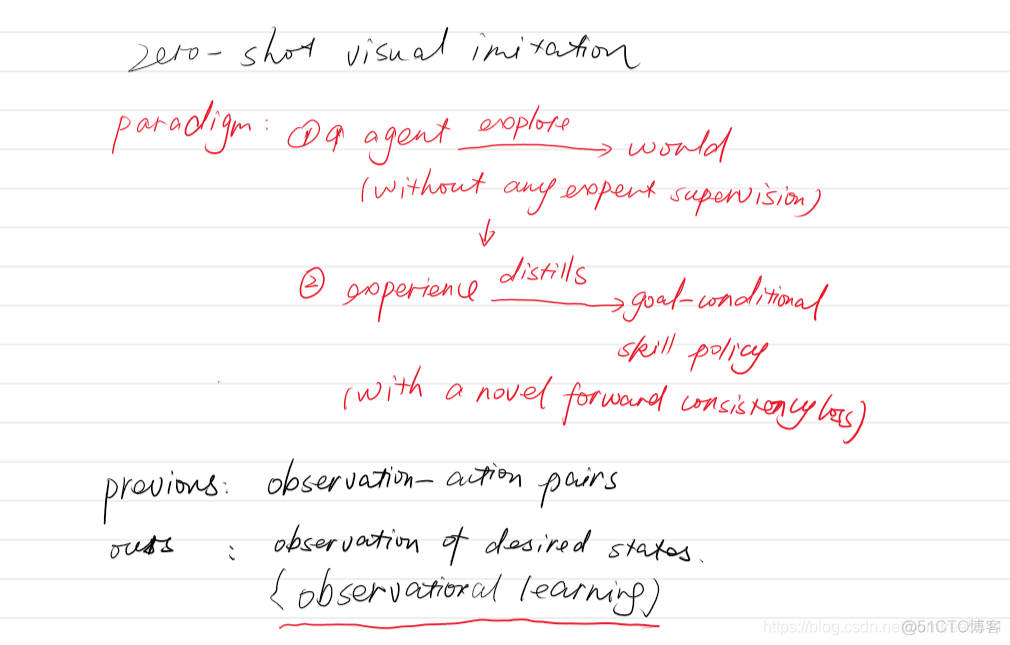 zero-shot visual imitation
paradigm: ① agent explore → world
(without any expert supervision)
↓
② experience distills → goal-conditional
skill policy
(with a novel forward consistency loss)
previous: observation-action pairs
ours : observation of desired states.
(observational learning)
https://blog.csdn.ne @51CTO博客